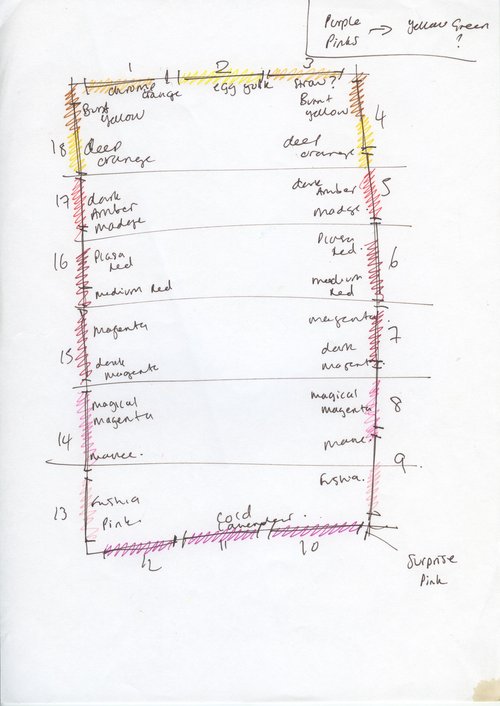 Purple
Pinks → Yellow Green
?
1 2 3
chrome
orange
egg yolk
Straw?
Burnt
yellow
Burnt
yellow
4
18
deep
orange
deep
orange
17
dark
Amber
madge
dark
Amber
madge.
5
16
Plasa
Red
Plasa
Red.
6
medium Red
medium
Red
magenta
magenta
7
15
dark
magenta
dark
magenta
magical
magenta
magical
magenta
8
14
mauve.
mauve.
9
Fushia
Fushia.
13
Pink
cold
Lavendar.
12 11 10
Surprise
Pink